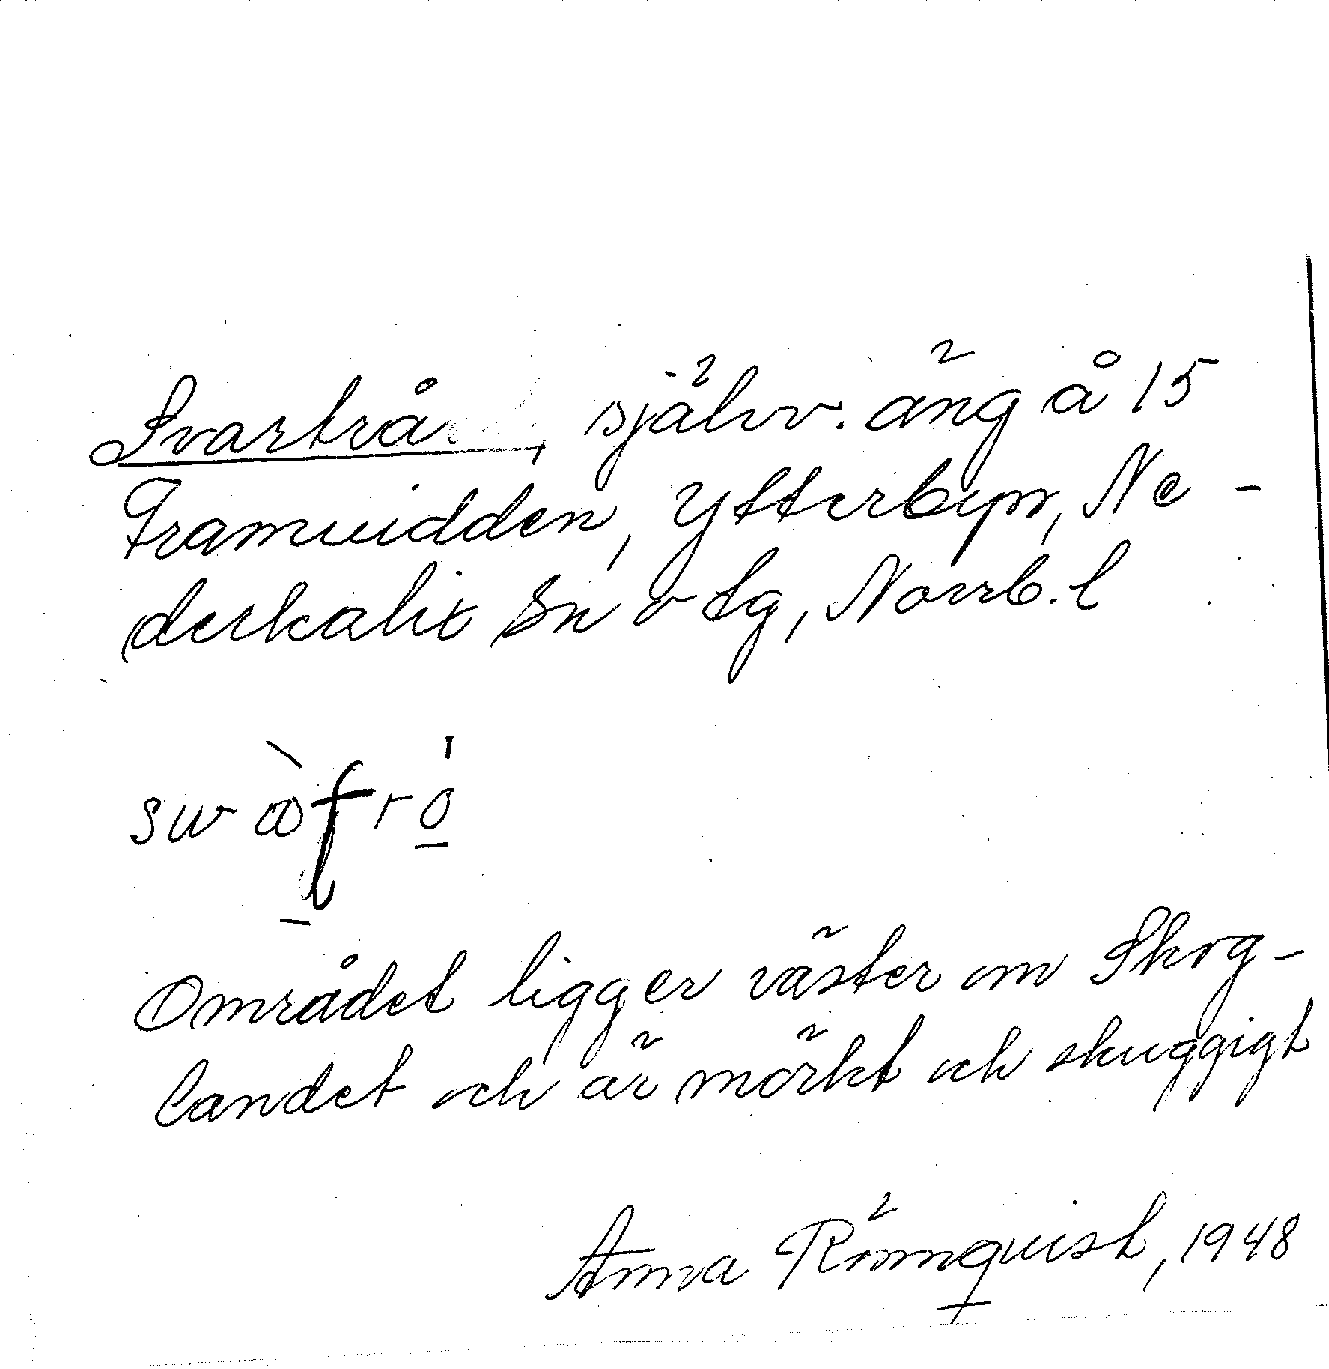 Svartrå, självv. äng å 15
Framvidden, Ytterbyn, Ne-
derkalix sn o tg, Norrb. l
Området ligger väster om Skog-
landet och är mörkt och skuggigt
Anna Rönnquist, 1948